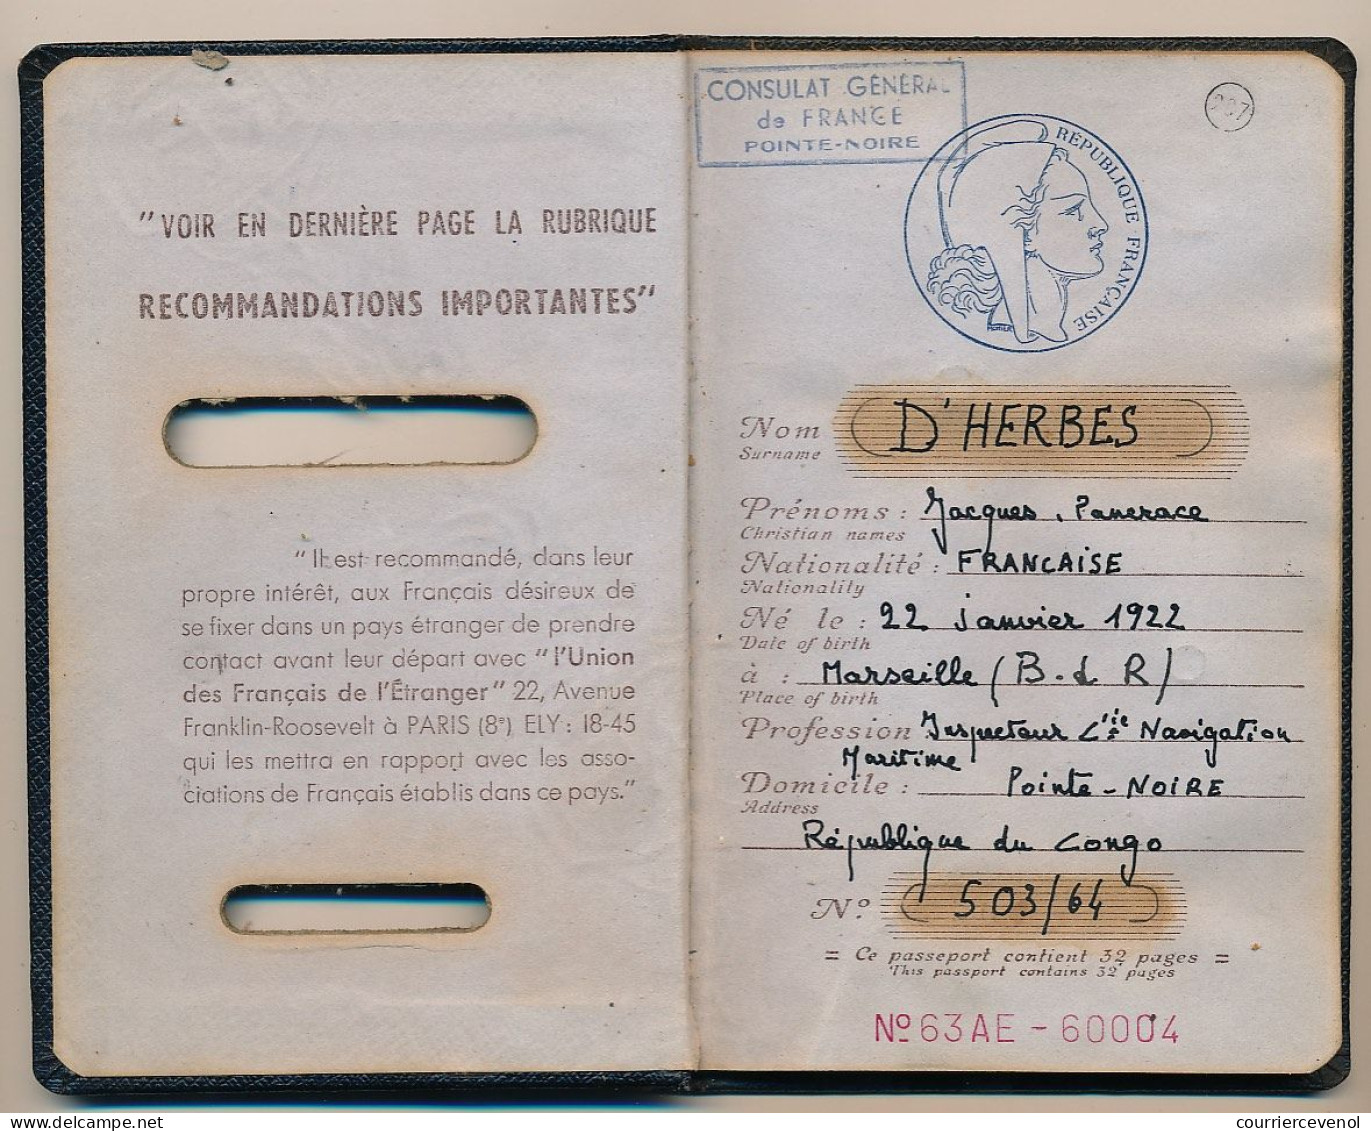 "VOIR EN DERNIÈRE PAGE LA RUBRIQUE
RECOMMANDATIONS IMPORTANTES"
"Il est recommandé, dans leur
propre intérêt, aux Français désireux de
se fixer dans un pays étranger de prendre
contact avant leur départ avec "l'Union
des Français de l'Étranger" 22, Avenue
Franklin-Roosevelt à PARIS (8e) ELY : 18-45
qui les mettra en rapport avec les asso-
ciations de Français établis dans ce pays."
CONSULAT GÉNÉRAL
de FRANCE
POINTE-NOIRE
RÉPUBLIQUE FRANÇAISE
Nom D'HERBES
Surname
Prénoms : Jacques, Panerace
Christian names
Nationalité : FRANCAISE
Nationality
Né le : 22 janvier 1922
Date of birth
à : Marseille (B. d R)
Place of birth
Profession Inspecteur Cie Navigation
Maritime
Domicile : Pointe-NOIRE
Address
République du Congo
No. 503/64
= Ce passeport contient 32 pages =
This passport contains 32 pages
No 63AE - 60004
courriercevenol